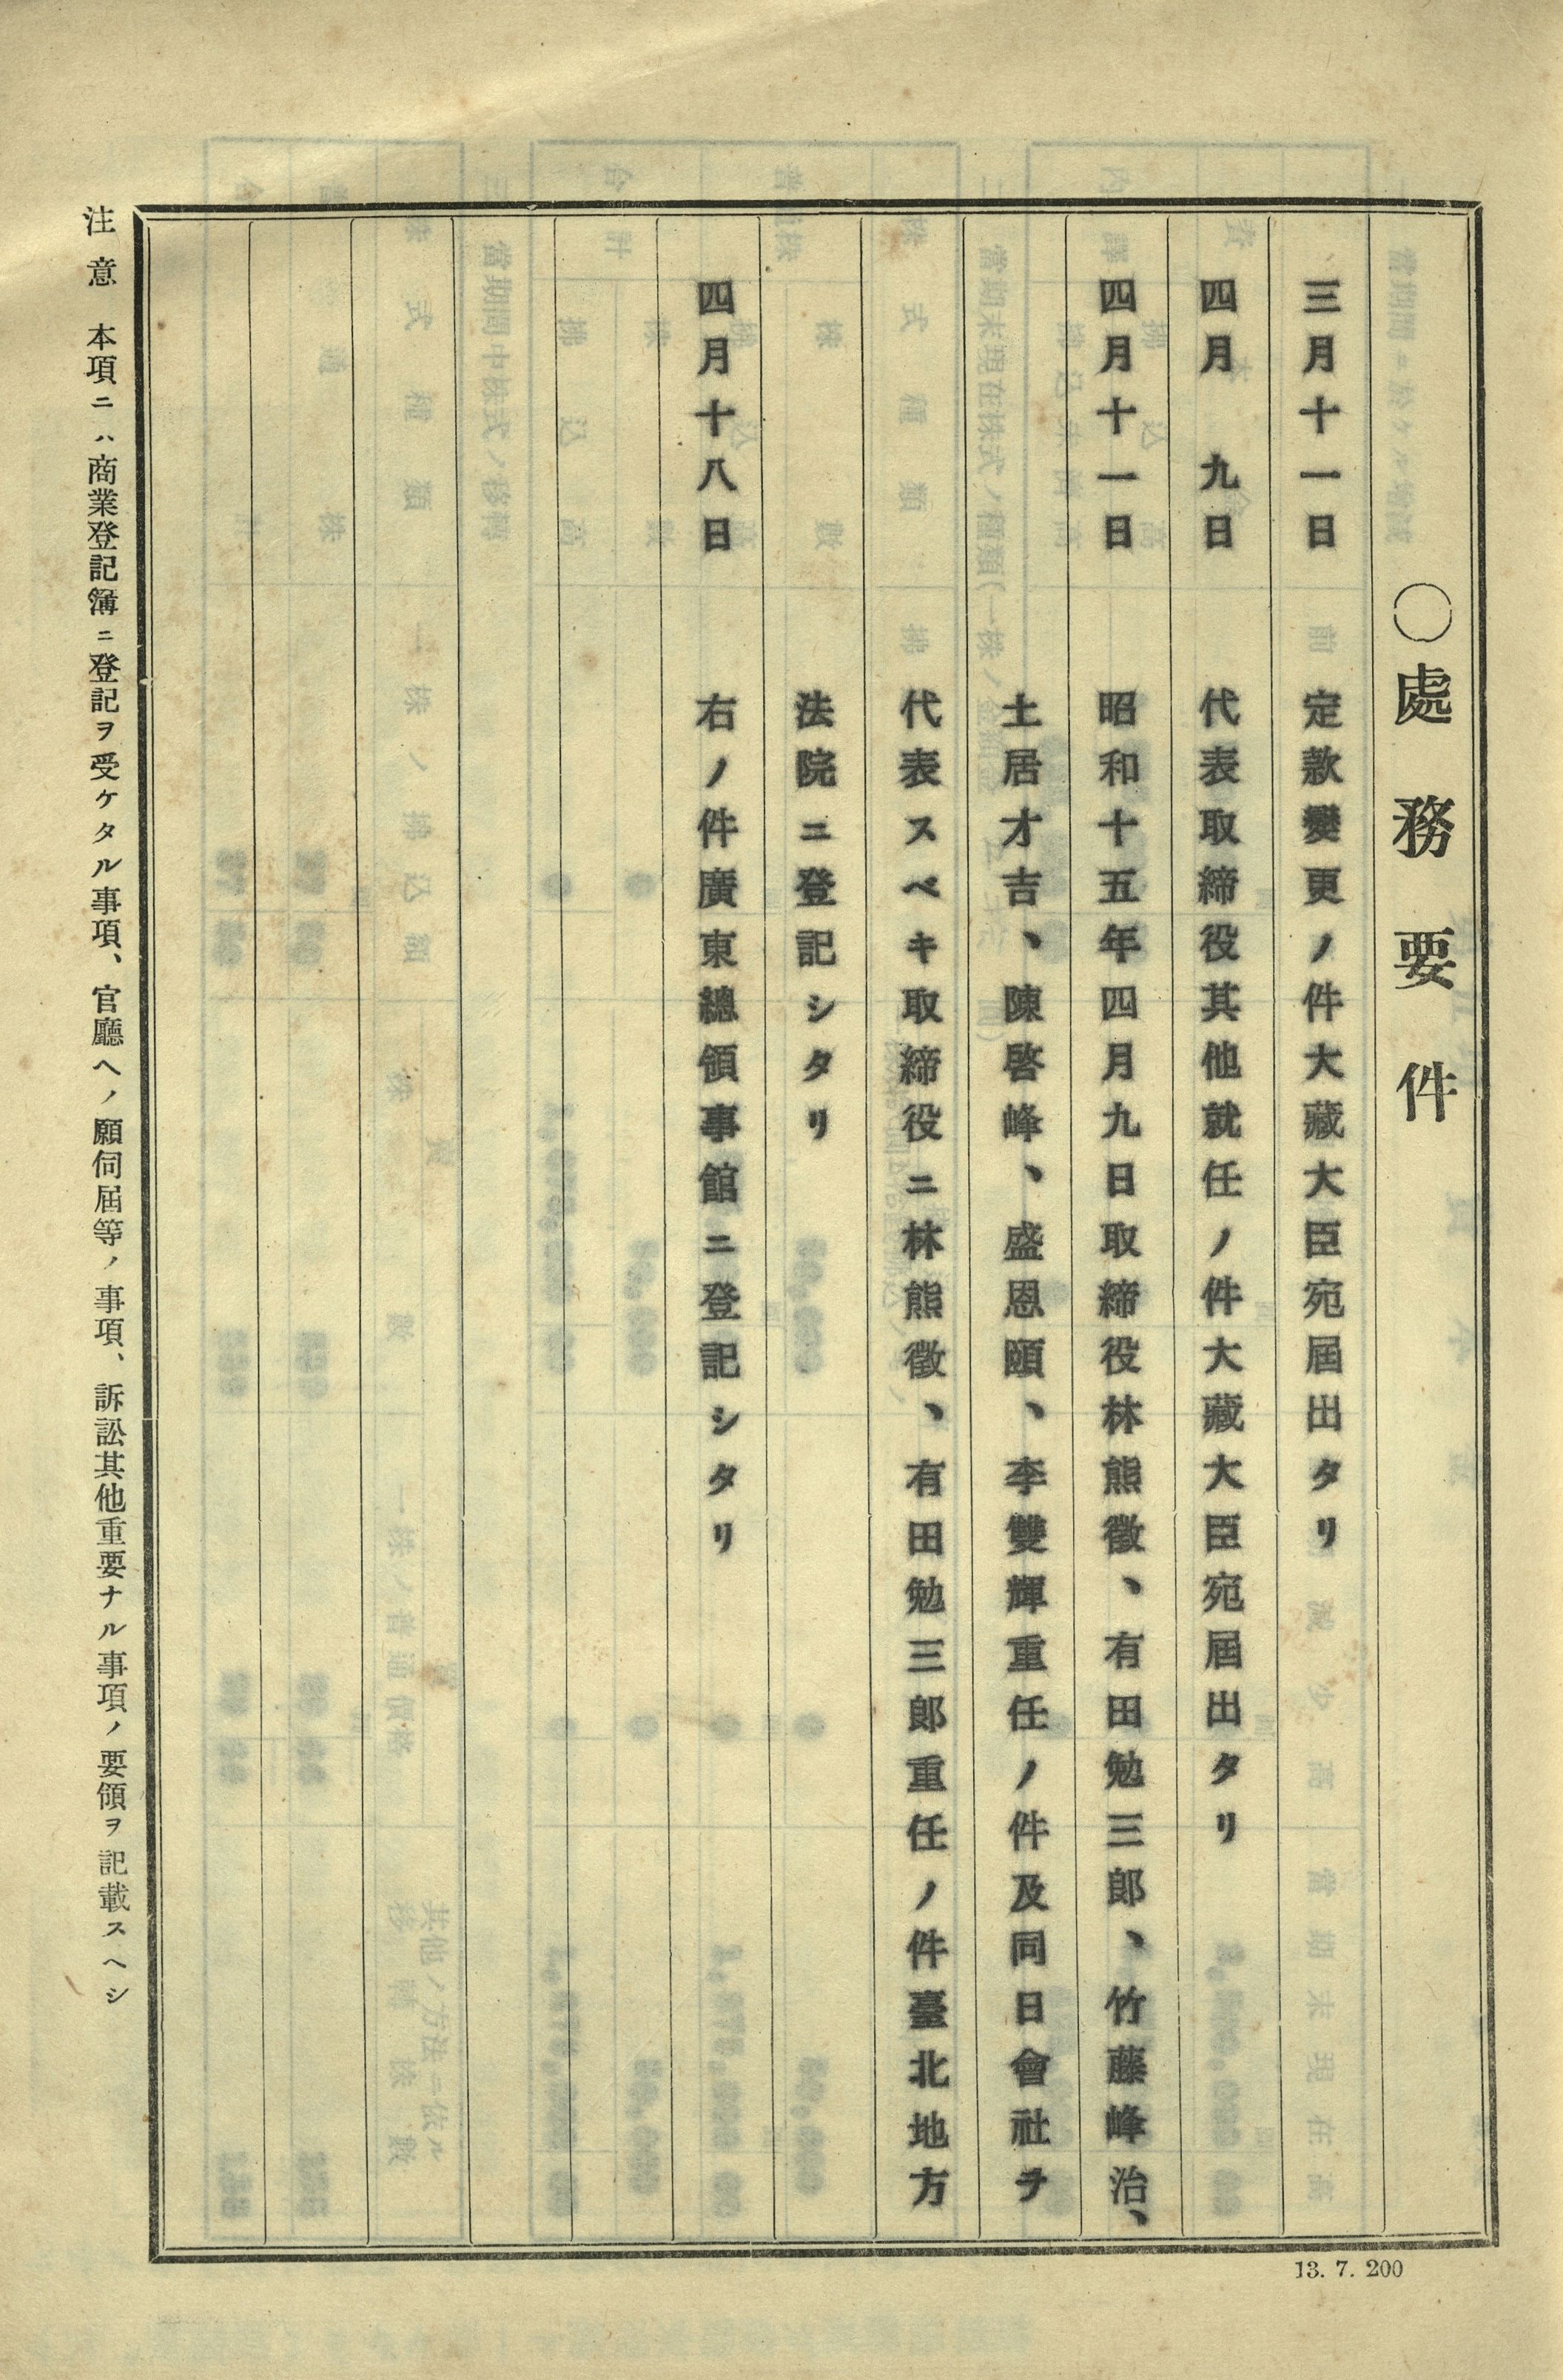 〇處務要件
三月十一日 定款變更ノ件大藏大臣宛屆出タリ
四月九日 代表取締役其他就任ノ件大藏大臣宛屆出タリ
四月十一日 昭和十五年四月九日取締役林熊徵、有田勉三郎、竹藤峰治、
土居才吉、陳啓峰、盛恩頤、李雙輝重任ノ件及同日會社ヲ
代表スベキ取締役ニ林熊徵、有田勉三郎重任ノ件臺北地方
法院ニ登記シタリ
四月十八日 右ノ件廣東總領事館ニ登記シタリ
注意 本項ニハ商業登記簿ニ登記ヲ受ケタル事項、官廳ヘノ願伺屆等ノ事項、訴訟其他重要ナル事項ノ要領ヲ記載スヘシ
13. 7. 200